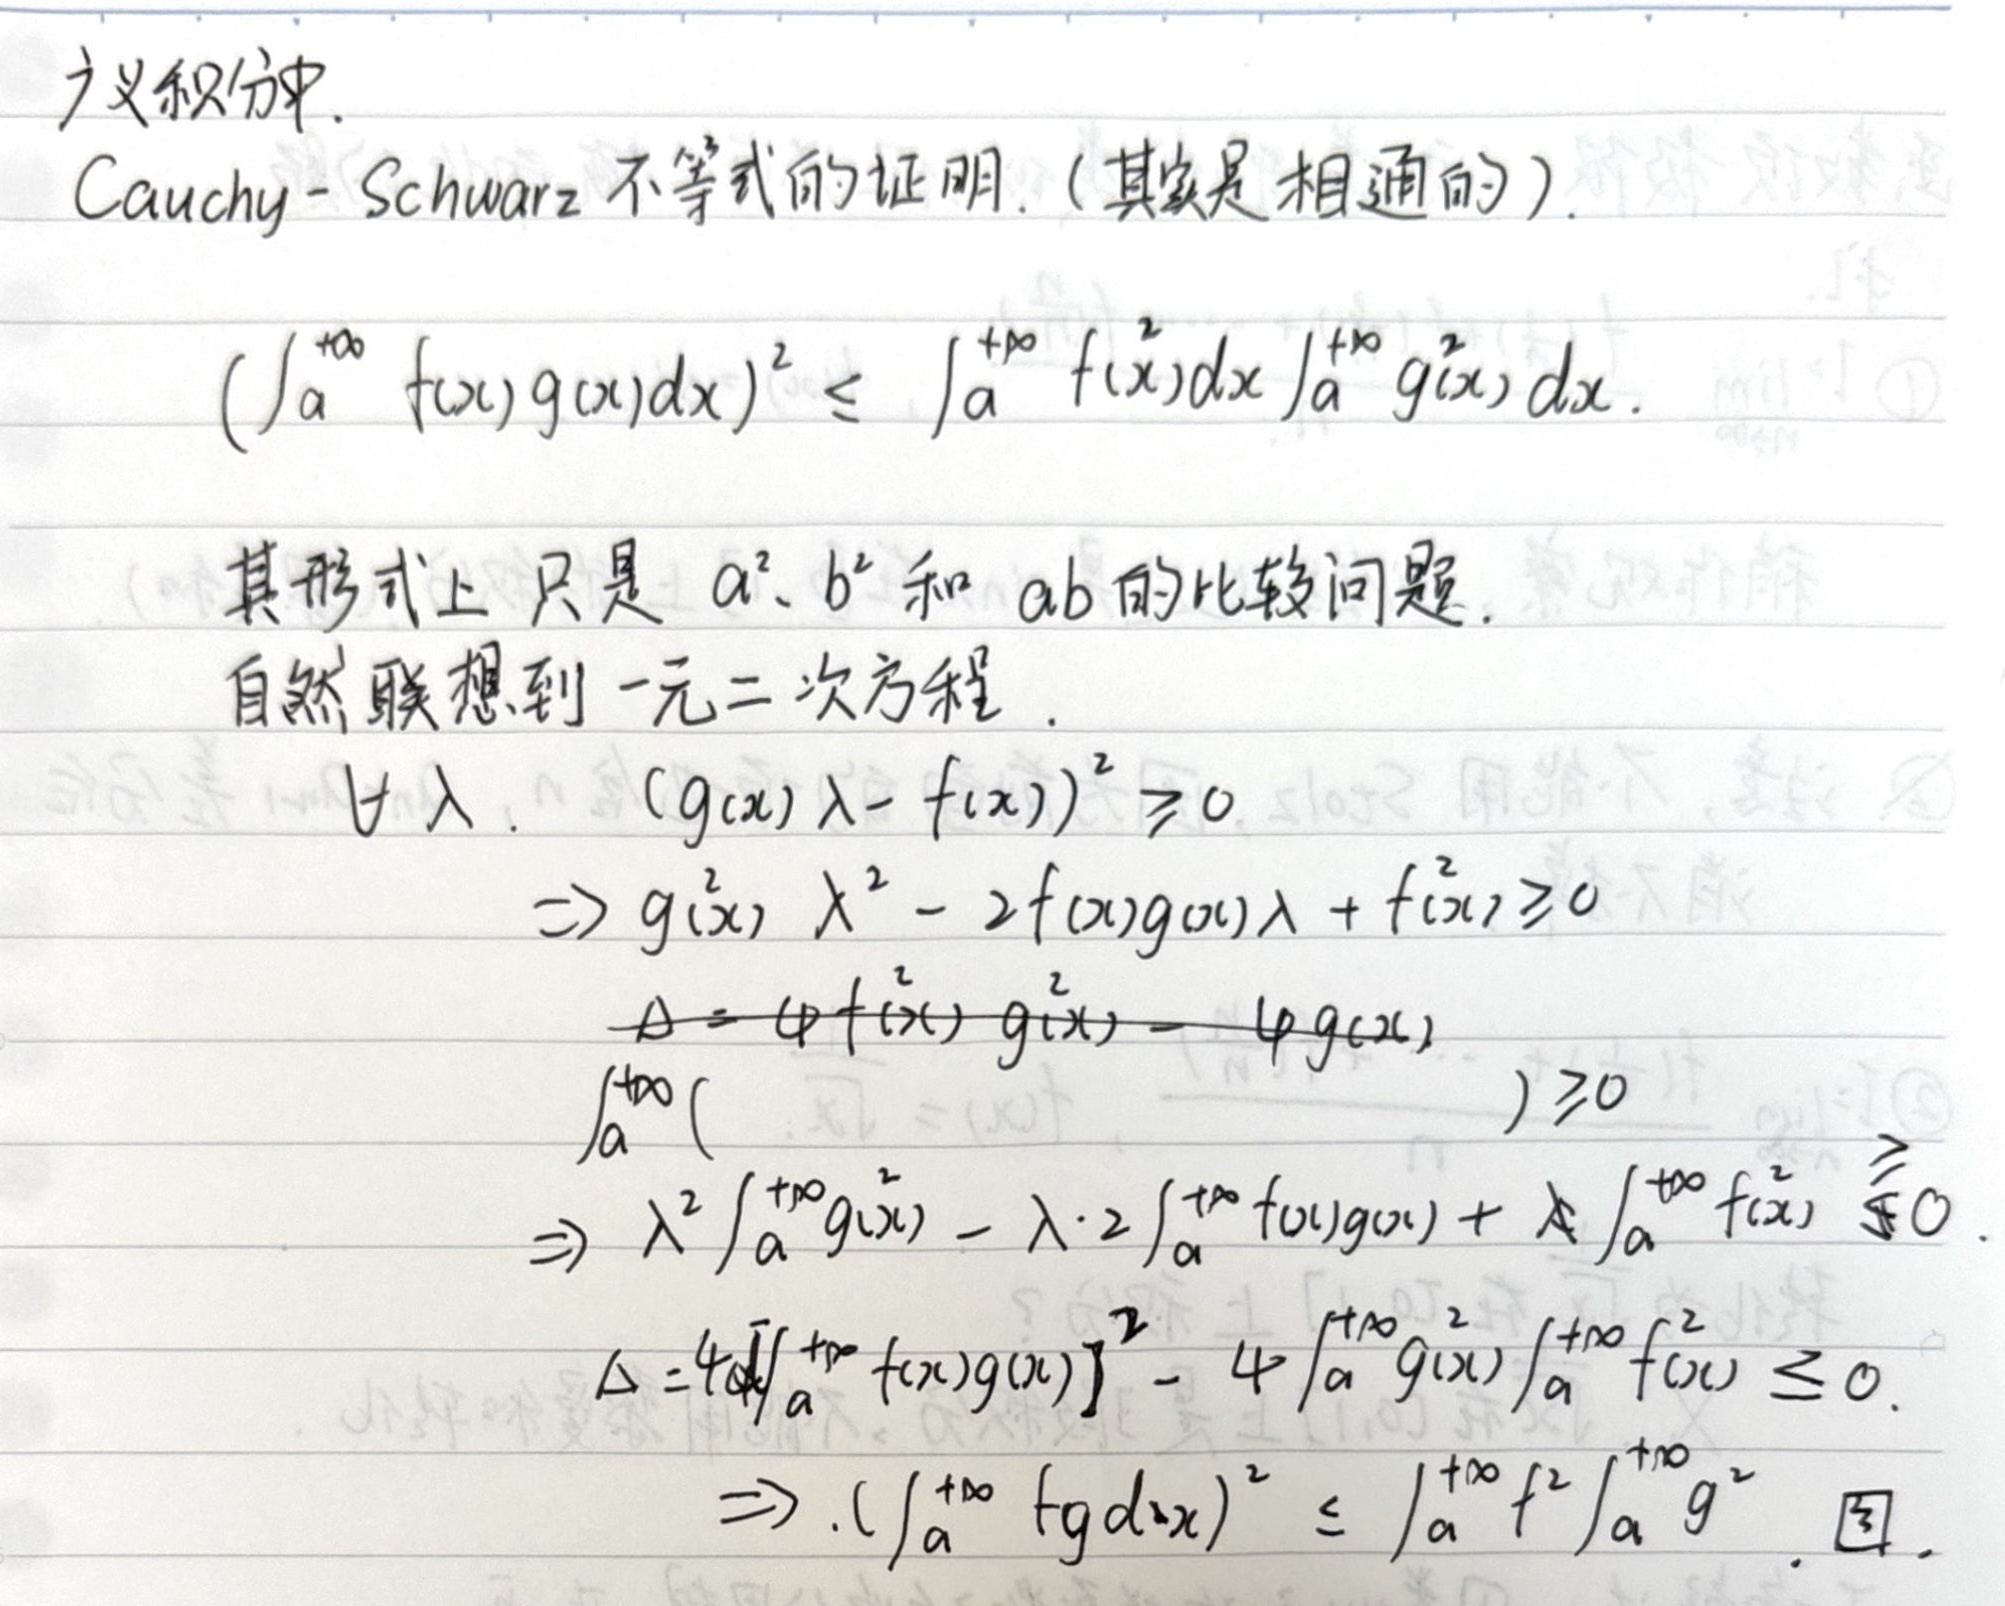 广义积分中.
Cauchy-Schwarz 不等式的证明.(其实是相通的).
(∫ₐ⁺∞ f(x)g(x)dx)² ≤ ∫ₐ⁺∞ f²(x)dx ∫ₐ⁺∞ g²(x)dx.
其形式上只是 a²、b² 和 ab 的比较问题.
自然联想到一元二次方程.
∀ λ. (g(x)λ - f(x))² ≥ 0
⇒ g²(x) λ² - 2f(x)g(x)λ + f²(x) ≥ 0
Δ = 4f²(x) g²(x) - 4g(x)
∫ₐ⁺∞ ( ) ≥ 0
⇒ λ² ∫ₐ⁺∞ g²(x) - λ·2 ∫ₐ⁺∞ f(x)g(x) + ∫ₐ⁺∞ f²(x) ≥ 0.
Δ = 4[∫ₐ⁺∞ f(x)g(x)]² - 4∫ₐ⁺∞ g²(x) ∫ₐ⁺∞ f²(x) ≤ 0.
⇒ .(∫ₐ⁺∞ fg dx)² ≤ ∫ₐ⁺∞ f² ∫ₐ⁺∞ g² .